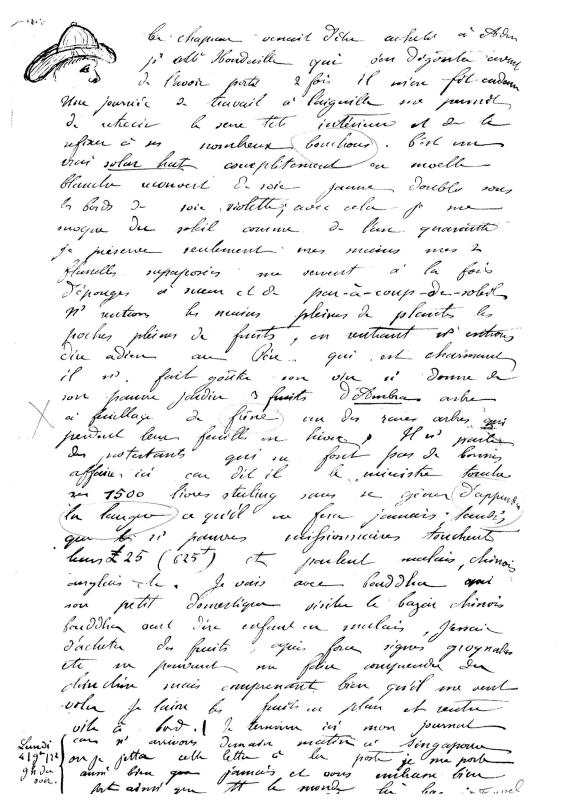 Ce chapeau venait d'être acheté à Aden
par Mr Houdaille qui s'en dégouta avant
de l'avoir porté 2 fois il m'en fit cadeau
Une journée de travail à l'aiguille me permit
de rétrécir le serre tête intérieur et de le
refixer à ses nombreux bouchons. C'est un
vrai solar hat complètement en moelle
blanche recouvert de soie jaune doublé sous
les bords de soie violette; avec cela je me
moque du soleil comme de l'an quarante
je préserve seulement mes mains mes 2
flanelles superposées me servent à la fois
d'éponges à sueur et de par-à-coup-de-soleil
Ns rentrons les mains pleines de plants les
poches pleines de fruits, en rentrant ns entrons
dire adieu au Père qui est charmant
il ns fait goûter son vin ns donne de
son pauvre jardin 3 fruits d'Ambra arbre
à feuillage de frêne un des rares arbres qui
perdent leur feuilles en hiver. Il ns parle
des protestants qui ne font pas de bonnes
affaires ici car dit il le ministre touche
ses 1500 livres sterling sans se gêner d'apprendre
la langue ce qu'il ne fera jamais. tandis
que ls ns pauvres missionnaires touchent
leurs £ 25 (625f) et parlent malais, chinois
anglais etc. Je vais avec bouddha qui
son petit domestique visiter le bazar chinois
bouddha veut dire enfant en malais, J'essaie
d'acheter des fruits, après force signes grognades
etc ne pouvant me faire comprendre du
chinchin mais comprenant bien qu'il me veut
voler je laisse les fruits en plan et rentre
vite à bord. Je termine ici mon journal
car ns arrivons demain matin à Singapoure
où je jette cette lettre à la poste je me porte
aussi bien que jamais et vous embrasse bien
fort ainsi que tt le monde là bas
Lundi
4 9bre 72
9h du
soir.